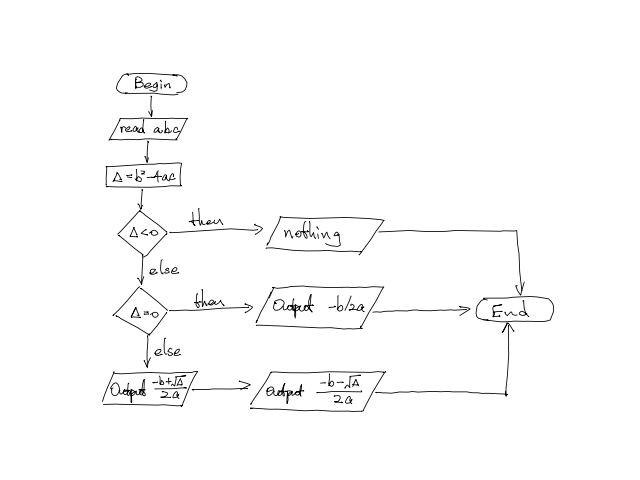 Begin
read abc
Δ=b²-4ac
Δ<0
then
nothing
else
Δ=0
then
Output -b/2a
End
else
Output -b+√Δ/2a
Output -b-√Δ/2a